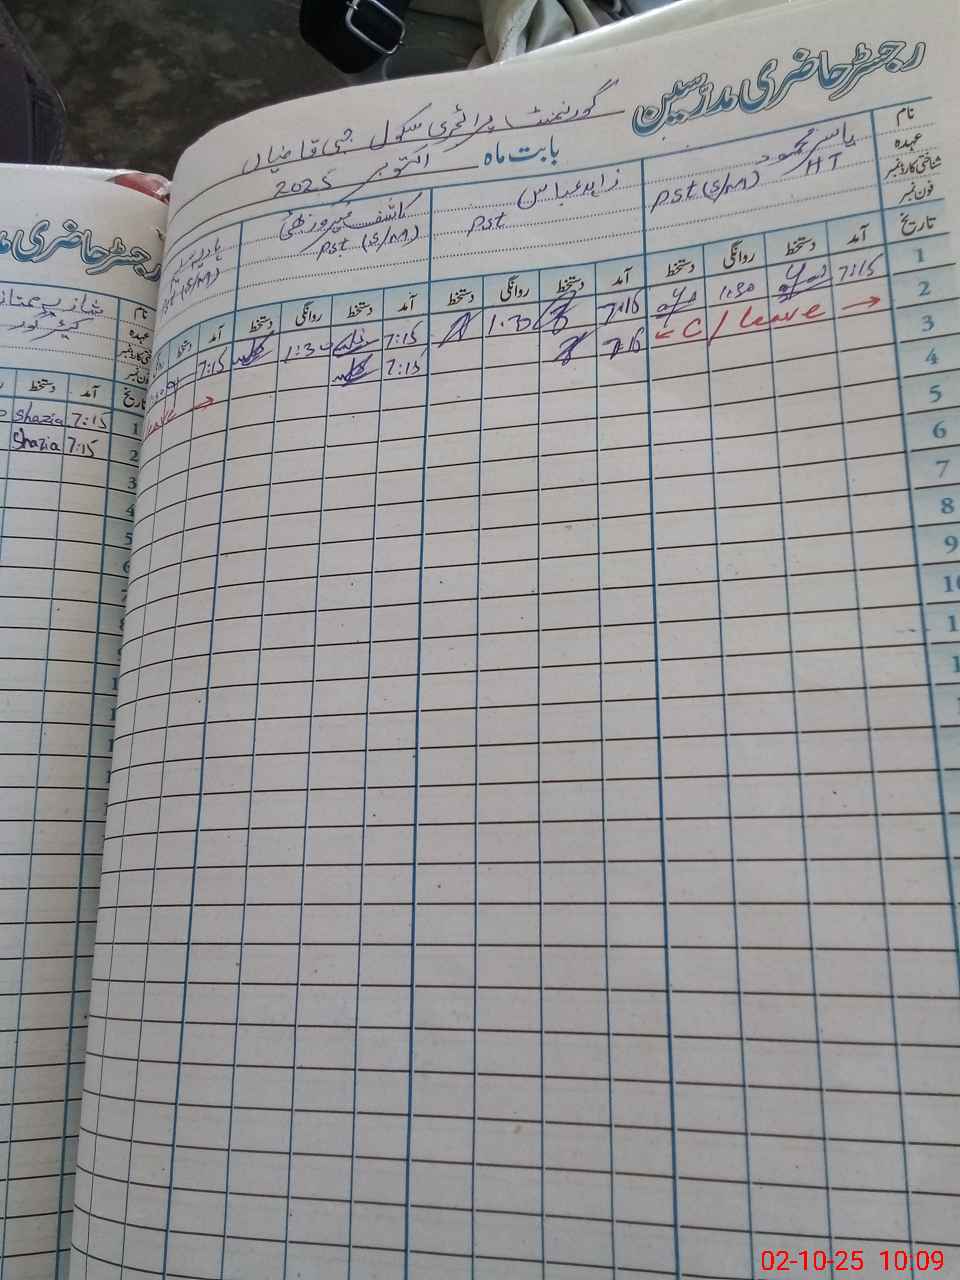 رجسٹر حاضری مدرسین
گورنمنٹ پرائمری سکول جبی قاضیاں
بابت ماہ اکتوبر 2025
نام
عہدہ
شناختی کارڈ نمبر
فون نمبر
یاسر محمود
HT
PST (S/M)
زاہد عباس
PST
کاشف
PST (S/M)
(S/M)
تاریخ آمد دستخط روانگی دستخط آمد دستخط روانگی دستخط آمد دستخط روانگی دستخط آمد دستخط
1 7:15 1:30 7:15 1:30 7:15 1:30 7:15
2 ← C/leave → 7:15 7:15 leave →
3
4
5
6
7
8
9
10
رجسٹر حاضری مد
نام
عہدہ
شناختی کارڈ نمبر
فون نمبر
شازیہ ممتاز
کیئر گور
تاریخ آمد دستخط
1 7:15 Shazia
2 7:15 Shazia
3
4
5
6
02-10-25 10:09